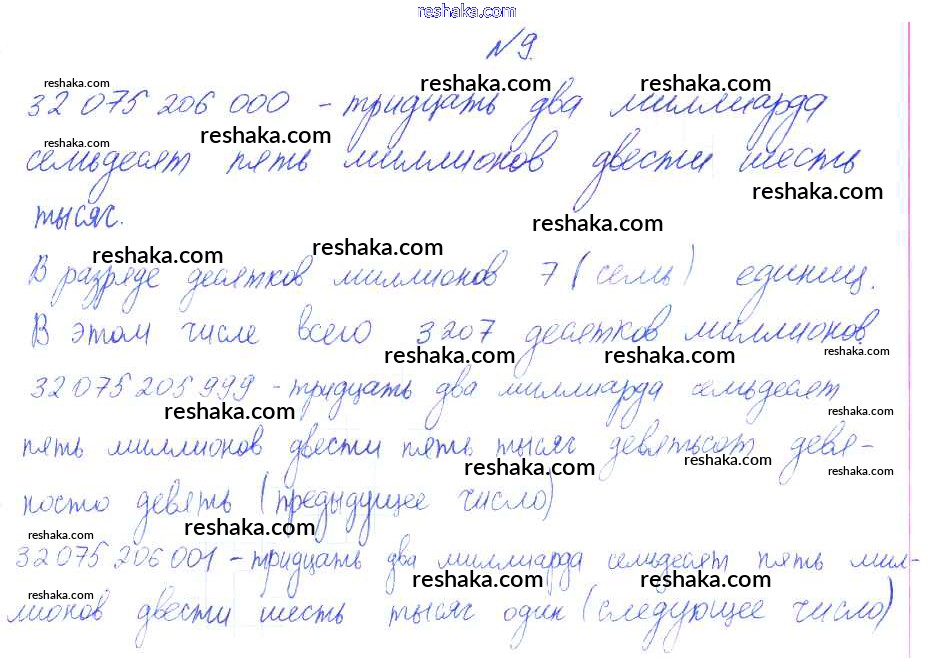 reshaka.com
№ 9.
reshaka.com
reshaka.com
reshaka.com
32 075 206 000 - тридцать два миллиарда
reshaka.com
reshaka.com
семьдесят пять миллионов двести шесть
reshaka.com
тысяч.
reshaka.com
reshaka.com
reshaka.com
В разряде десятков миллионов 7 (семь) единиц.
В этом числе всего 3207 десятков миллионов.
reshaka.com
reshaka.com
reshaka.com
32 075 205 999 - тридцать два миллиарда семьдесят
reshaka.com
reshaka.com
пять миллионов двести пять тысяч девятьсот девя-
reshaka.com
reshaka.com
reshaka.com
носто девять (предыдущее число)
reshaka.com
reshaka.com
32 075 206 001 - тридцать два миллиарда семьдесят пять мил-
reshaka.com
reshaka.com
лионов двести шесть тысяч один (следующее число)